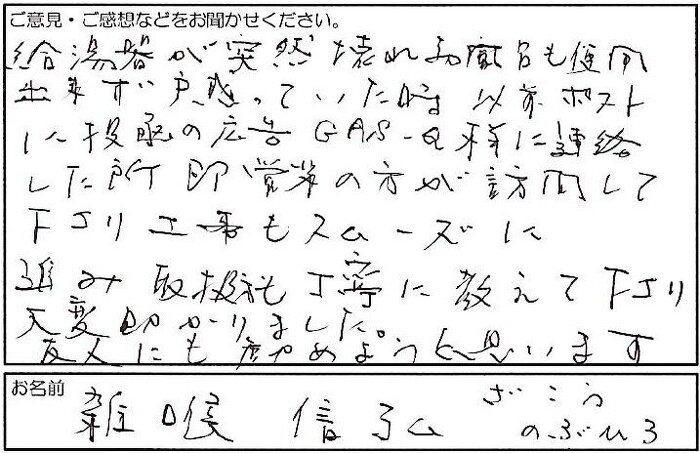 ご意見・ご感想などをお聞かせください。
給湯器が突然壊れお風呂も使用
出来ず戸惑っていた時以前ポスト
に投函の広告GAS-Q様に連絡
した所即営業の方が訪問して
下さり工事もスムーズに
進み取扱も丁寧に教えて下さり
大変助かりました。
友人にも勧めようと思います
お名前
雑喉 信弘
ざこう
のぶひろ